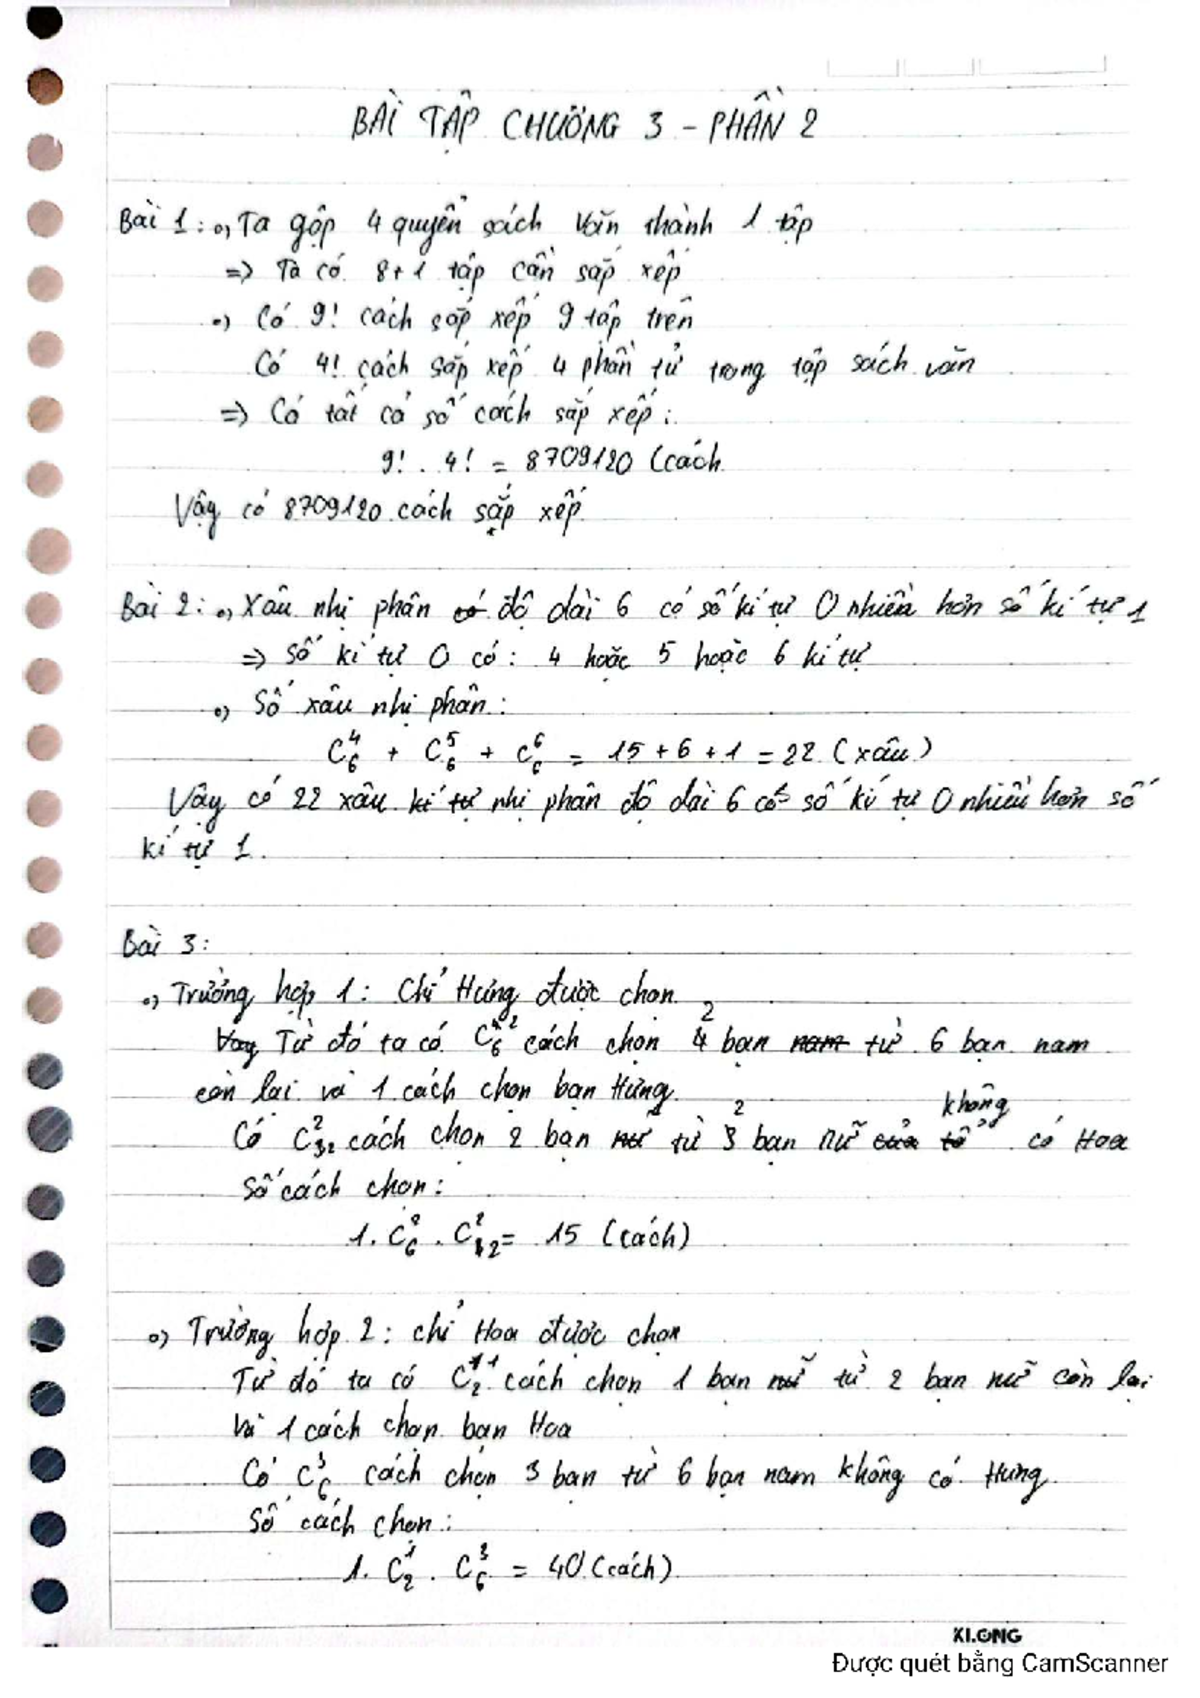 BÀI TẬP CHƯƠNG 3 - PHẦN 2
Bài 1: o, Ta gộp 4 quyển sách Văn thành 1 tập
=> Ta có 8+1 tập cần sắp xếp
o, Có 9! cách sắp xếp 9 tập trên
Có 4! cách sắp xếp 4 phần tử trong tập sách văn
=> Có tất cả số cách sắp xếp:
9! . 4! = 8709120 (cách
Vậy có 8709120 cách sắp xếp
Bài 2: o, Xâu nhị phân có độ dài 6 có số kí tự 0 nhiều hơn số kí tự 1
=> Số kí tự 0 có: 4 hoặc 5 hoặc 6 kí tự
o, Số xâu nhị phân:
C₆⁴ + C₆⁵ + C₆⁶ = 15 + 6 + 1 = 22 (xâu)
Vậy có 22 xâu kí tự nhị phân độ dài 6 có số kí tự 0 nhiều hơn số
kí tự 1.
Bài 3:
o, Trường hợp 1: Chỉ Hưng được chọn
Vậy Từ đó ta có C₆² cách chọn 2 bạn nam từ 6 bạn nam
còn lại và 1 cách chọn bạn Hưng
Có C₂² cách chọn 2 bạn nữ từ 2 bạn nữ của tổ không có Hoa
Số cách chọn:
1. C₆² . C₂² = 15 (cách)
o, Trường hợp 2: chỉ Hoa được chọn
Từ đó ta có C₂¹ cách chọn 1 bạn nữ từ 2 bạn nữ còn lại
và 1 cách chọn bạn Hoa
Có C₆³ cách chọn 3 bạn từ 6 bạn nam không có Hưng
Số cách chọn:
1. C₂¹ . C₆³ = 40 (cách)
KLONG
Được quét bằng CamScanner